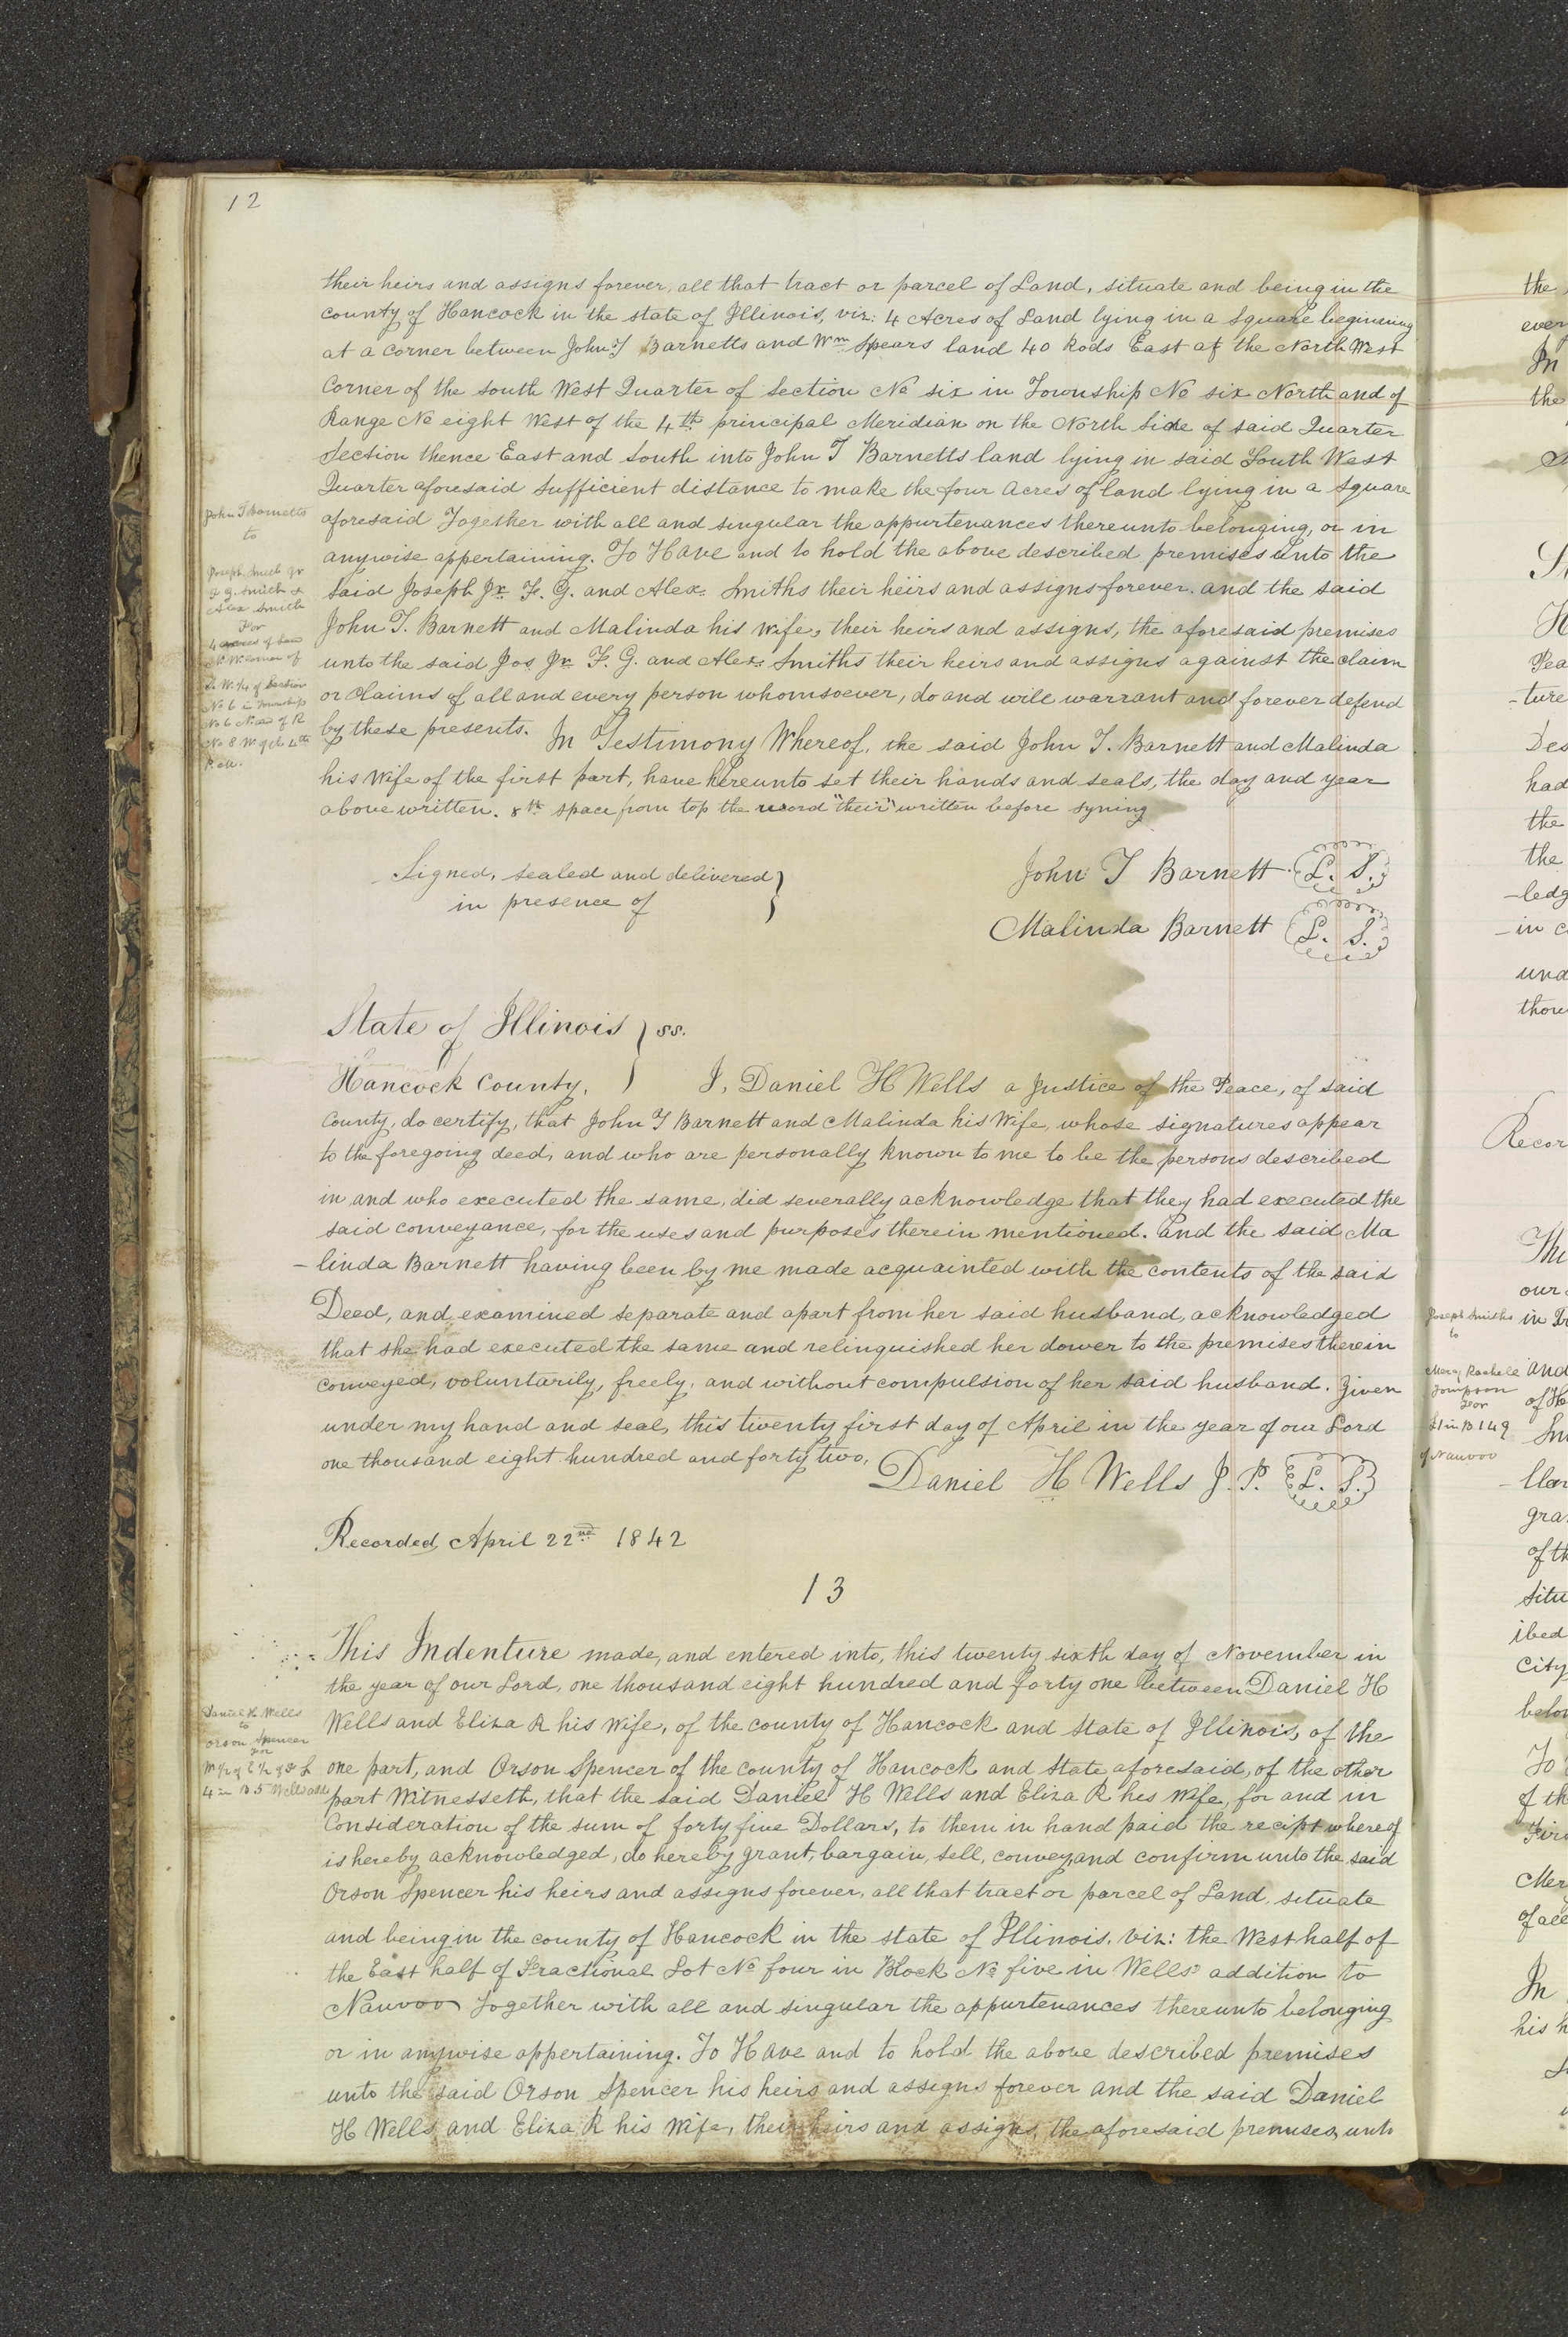 12
their heirs and assigns forever, all that tract or parcel of Land, situate and being in the
county of Hancock in the state of Illinois, viz: 4 Acres of Land lying in a square beginning
at a corner between John T Barnetts and Wm Spears land 40 Rods East of the North West
Corner of the South West Quarter of Section No six in Township No six North and of
Range No eight West of the 4th principal Meridian on the North Side of said Quarter
Section thence East and South into John T Barnetts land lying in said South West
Quarter aforesaid Sufficient distance to make the four Acres of land lying in a Square
aforesaid Together with all and singular the appurtenances thereunto belonging, or in
anywise appertaining. To Have and to hold the above described premises unto the
Said Joseph Jr. F. G. and Alex. Smiths their heirs and assigns forever. and the said
John T. Barnett and Malinda his Wife, their heirs and assigns, the aforesaid premises
unto the said Jos Jr. F. G. and Alex. Smiths their heirs and assigns against the claim
or Claims of all and every person whomsoever, do and will warrant and forever defend
by these presents. In Testimony Whereof, the said John T. Barnett and Malinda
his Wife of the first part, have hereunto set their hands and seals, the day and year
above written. 8th space from top the word "their" written before syning
John T Barnetts
to
Joseph Smith Jr
F G. Smith &
Alex Smith
For
4 acres of Land
N. W. corner of
S. W. 1/4 of Section
No 6 in Township
No 6 N. and of R
No 8 W. of the 4th
P. M.
Signed, sealed and delivered }
in presence of
John T Barnett L. S.
Malinda Barnett L. S.
State of Illinois } ss.
Hancock County, } I, Daniel H Wells a Justice of the Peace, of said
County, do certify, that John T Barnett and Malinda his Wife, whose signatures appear
to the foregoing deed, and who are personally known to me to be the persons described
in and who executed the same, did severally acknowledge that they had executed the
said conveyance, for the uses and purposes therein mentioned. and the said Ma
-linda Barnett having been by me made acquainted with the contents of the said
Deed, and examined separate and apart from her said husband, acknowledged
that she had executed the same and relinquished her dower to the premises therein
conveyed, voluntarily, freely, and without compulsion of her said husband. Given
under my hand and seal, this twenty first day of April in the year of our Lord
one thousand eight hundred and forty two,
Daniel H Wells J. P. L. S.
Recorded, April 22nd 1842
13
This Indenture made, and entered into, this twenty sixth day of November in
the year of our Lord, one thousand eight hundred and forty one between Daniel H
Wells and Eliza R his Wife, of the county of Hancock and State of Illinois, of the
one part, and Orson Spencer of the county of Hancock and State aforesaid, of the other
part Witnesseth, that the said Daniel H Wells and Eliza R his Wife, for and in
Consideration of the sum of forty five Dollars, to them in hand paid the recipt whereof
is hereby acknowledged, do hereby grant, bargain, sell, convey and confirm unto the said
Orson Spencer his heirs and assigns forever, all that tract or parcel of Land, situate
and being in the county of Hancock in the state of Illinois, viz: the West half of
the East half of Fractional Lot No four in Block No five in Wells addition to
Nauvoo Together with all and singular the appurtenances thereunto belonging
or in anywise appertaining. To Have and to hold the above described premises
unto the said Orson Spencer his heirs and assigns forever and the said Daniel
H Wells and Eliza R his Wife, their heirs and assigns, the aforesaid premises, unto
Daniel H. Wells
to
Orson Spencer
For
W 1/2 of E 1/2 of
4 in B 5 Wells add
the
ever
In
the
Pea
-ture
Des
had
the
the
-ledg
in c
und
thou
Recor
Thi
our
in
and
of
Joseph Smiths
to
Mercy Rachell
Tompson
For
L 1 in B 149
of Nauvoo
gra
of th
situ
ibed
City
belon
To
of th
Mer
of all
In
his h